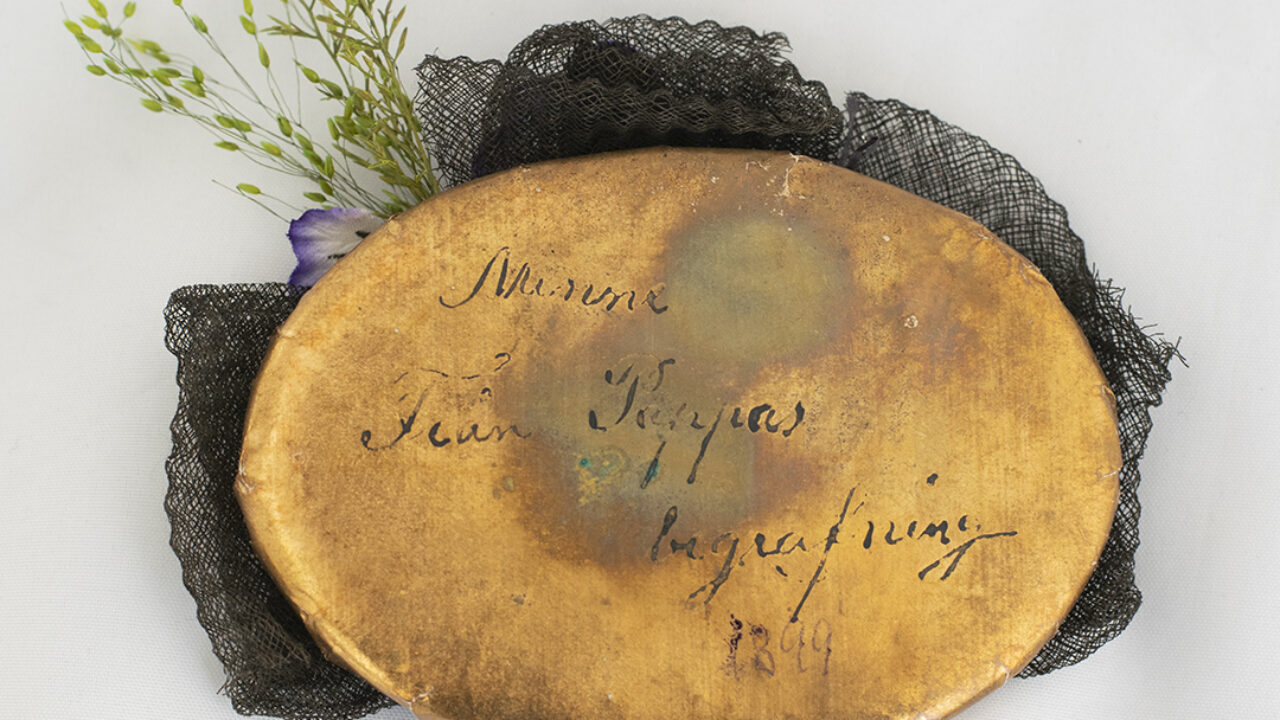 Minne
Från Pappas
begrafning
1899